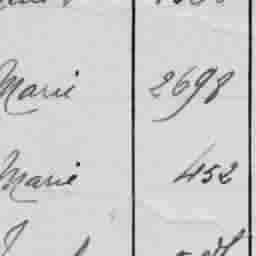 Marie 2698
Marie 452